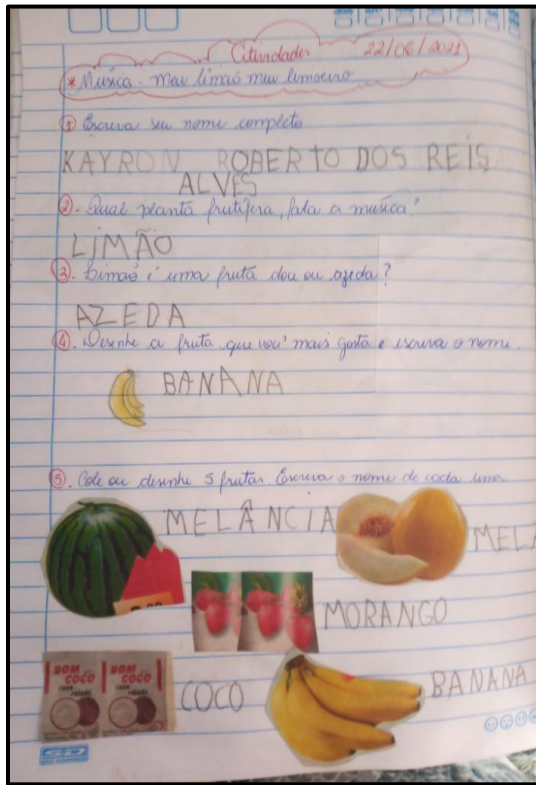 Atividades 22/06/2021
* Música - Meu limão meu limoeiro
1 Escreva seu nome completo
KAYRON ROBERTO DOS REIS
ALVES
2. Qual planta frutífera, fala a música?
LIMÃO
3. Limão é uma fruta doce ou azeda?
AZEDA
4. Desenhe a fruta que você mais gosta e escreva o nome.
BANANA
5. Cole ou desenhe 5 frutas. Escreva o nome de cada uma
MELÂNCIA
MELÃ
MORANGO
BOM COCO
BOM COCO
COCO
BANANA